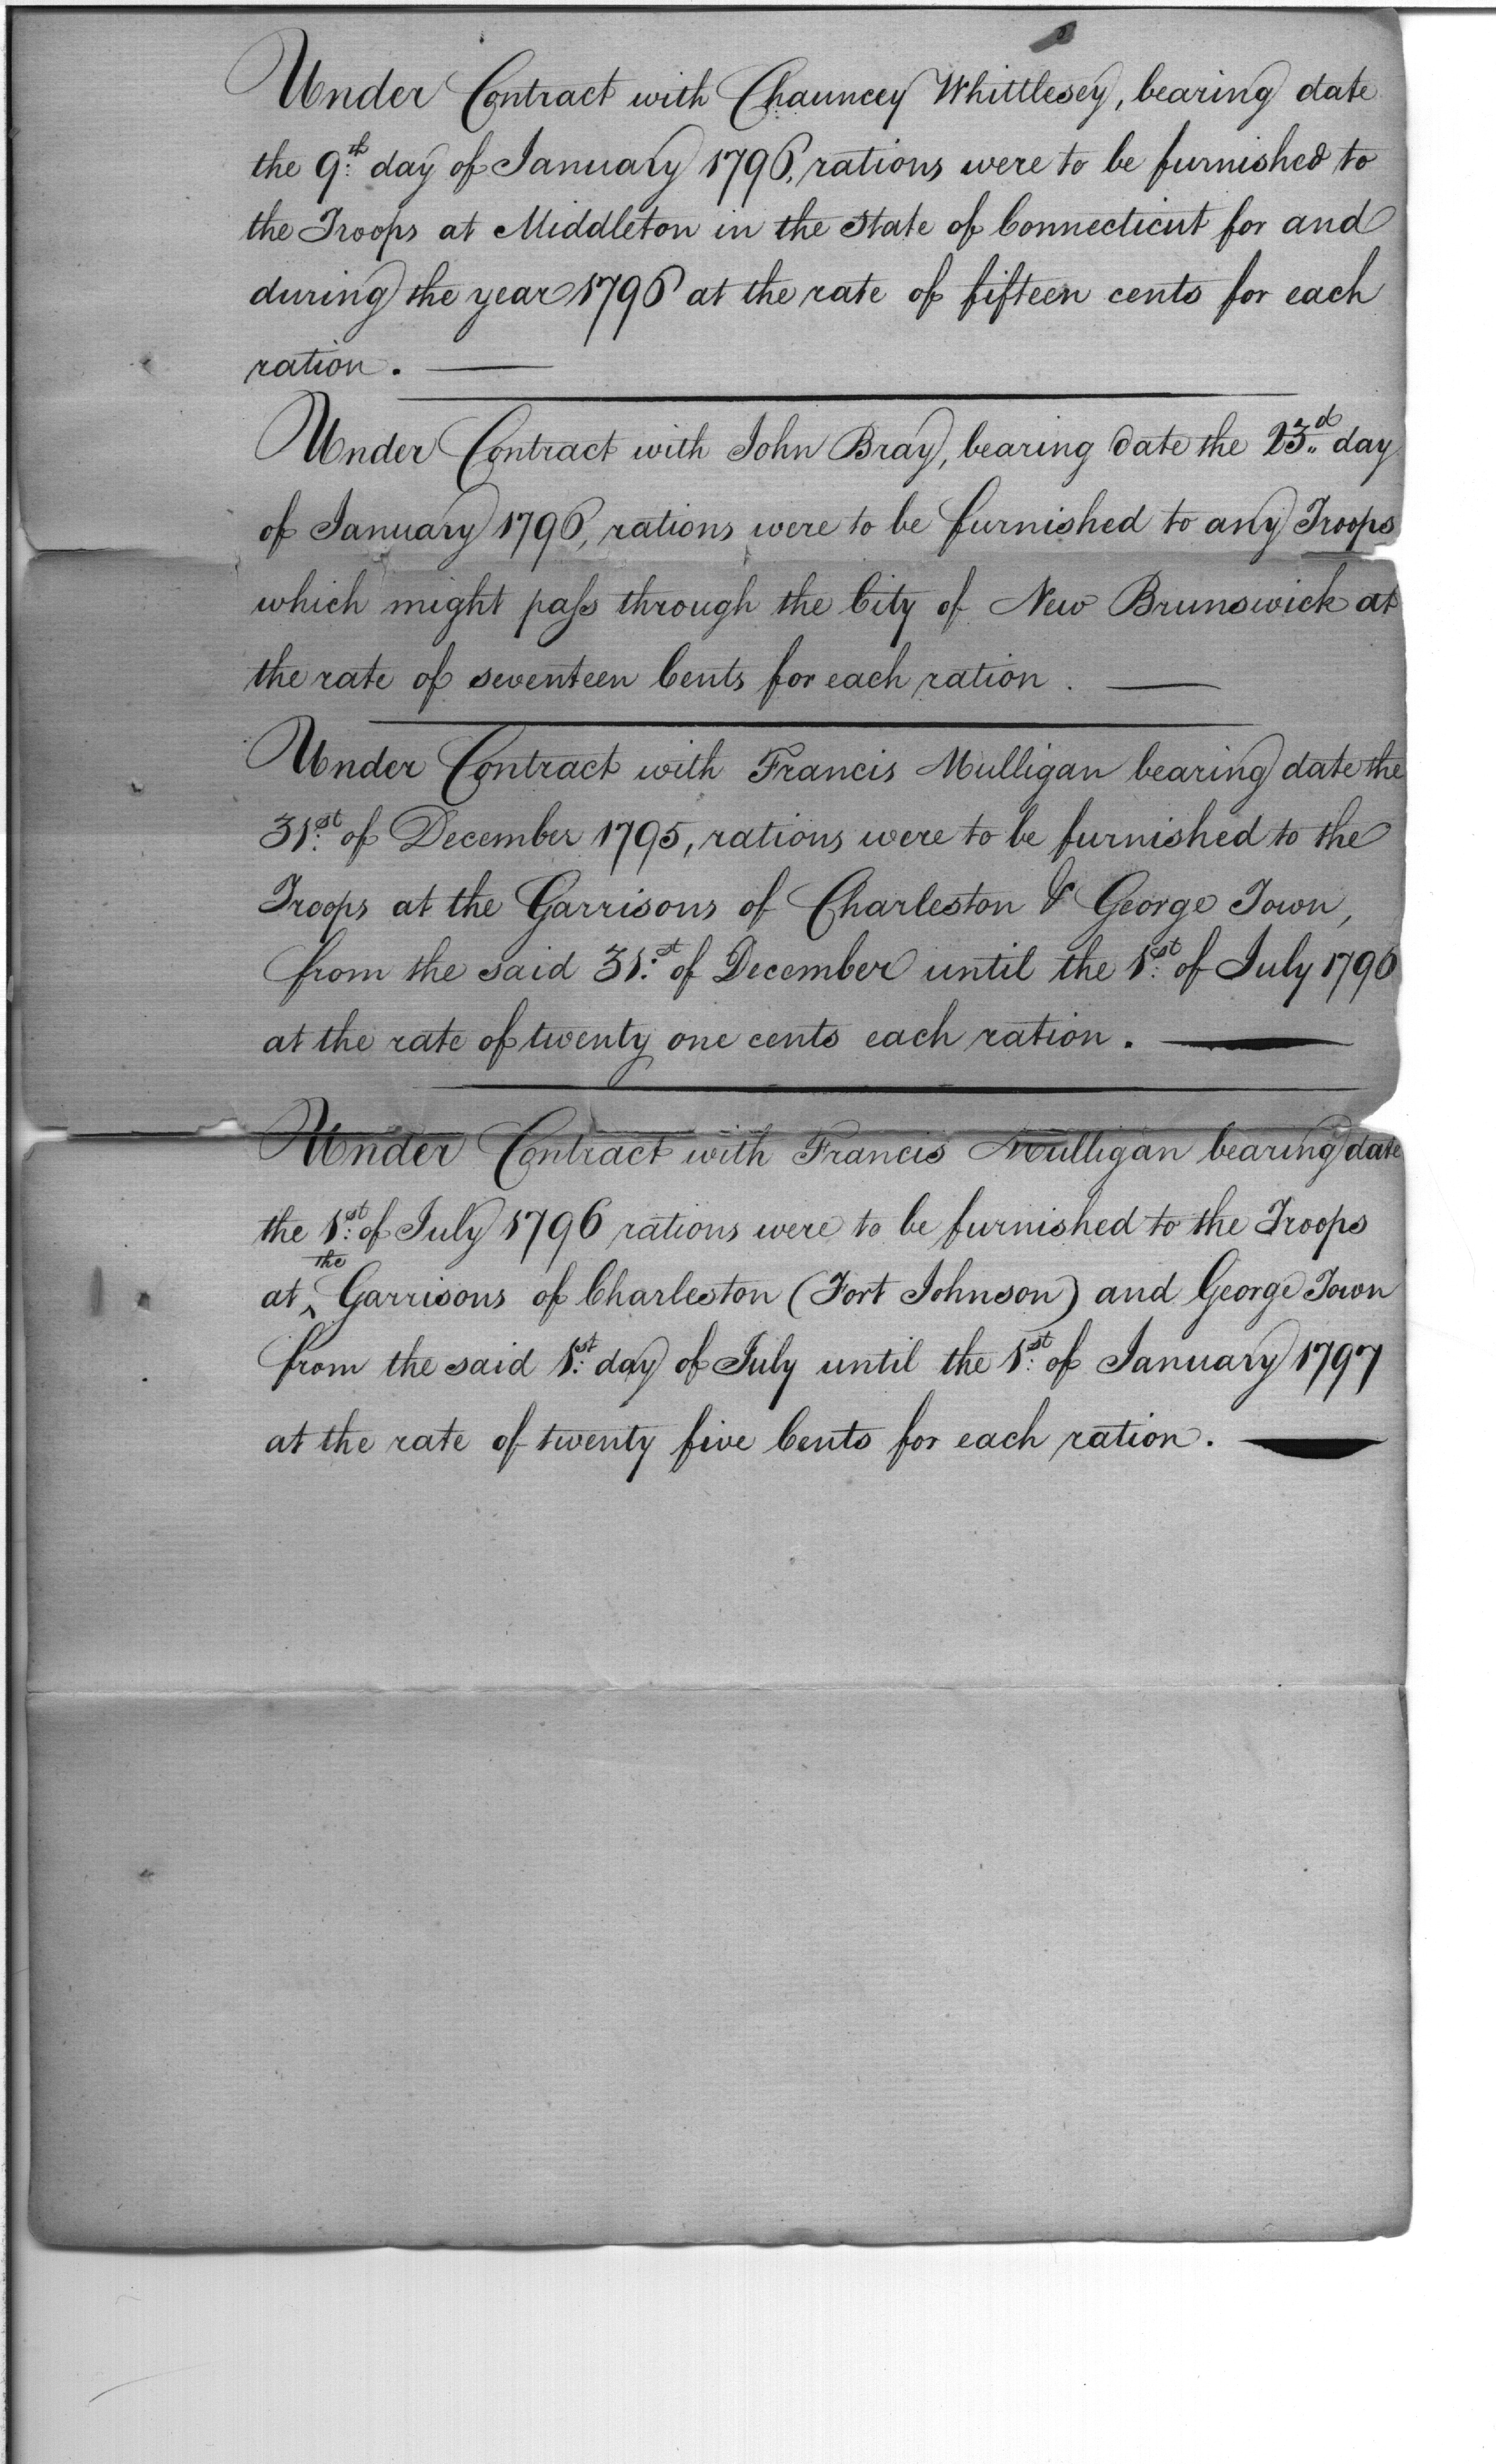 Under Contract with Chauncey Whittlesey, bearing date
the 9th day of January 1796, rations were to be furnished to
the Troops at Middleton in the State of Connecticut for and
during the year 1796 at the rate of fifteen cents for each
ration.
Under Contract with John Bray, bearing date the 23d day
of January 1796, rations were to be furnished to any Troops
which might paſs through the City of New Brunswick at
the rate of seventeen Cents for each ration.
Under Contract with Francis Mulligan bearing date the
31st of December 1795, rations were to be furnished to the
Troops at the Garrisons of Charleston & George Town,
from the said 31st of December until the 1st of July 1796
at the rate of twenty one cents each ration.
Under Contract with Francis Mulligan bearing date
the 1st of July 1796 rations were to be furnished to the Troops
at the Garrisons of Charleston (Fort Johnson) and George Town
from the said 1st day of July until the 1st of January 1797
at the rate of twenty five Cents for each ration.